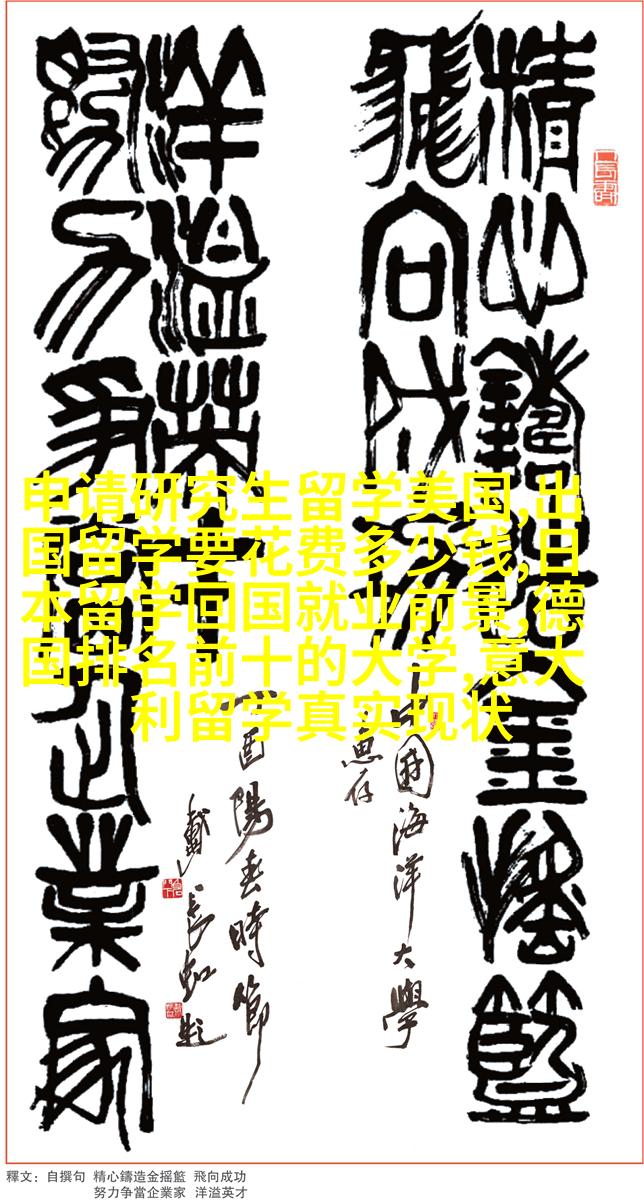 精心鑄造金搖籃
飛向成功
中國海洋大學
惠存
努力爭當企業家
洋溢英才
酉陽春時節
戴長虹題
申请研究生留学美国,出
国留学要花费多少钱,日
本留学回国就业前景,德
国排名前十的大学,意大
利留学真实现状
釋文：自撰句 精心鑄造金摇籃 飛向成功
努力争當企業家 洋溢英才